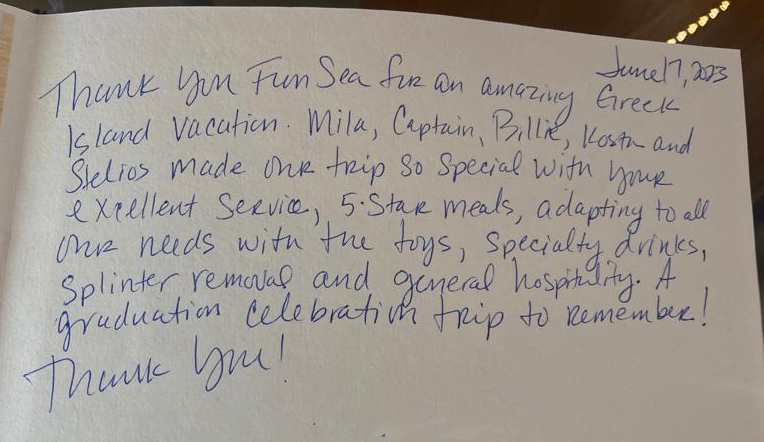 June 17, 2023
Thank you Fun Sea for an amazing Greek
Island vacation. Mila, Captain, Billie, Kosta and
Stelios made our trip so special with your
excellent service, 5-Star meals, adapting to all
our needs with the toys, specialty drinks,
splinter removal and general hospitality. A
graduation celebration trip to remember!
Thank you!